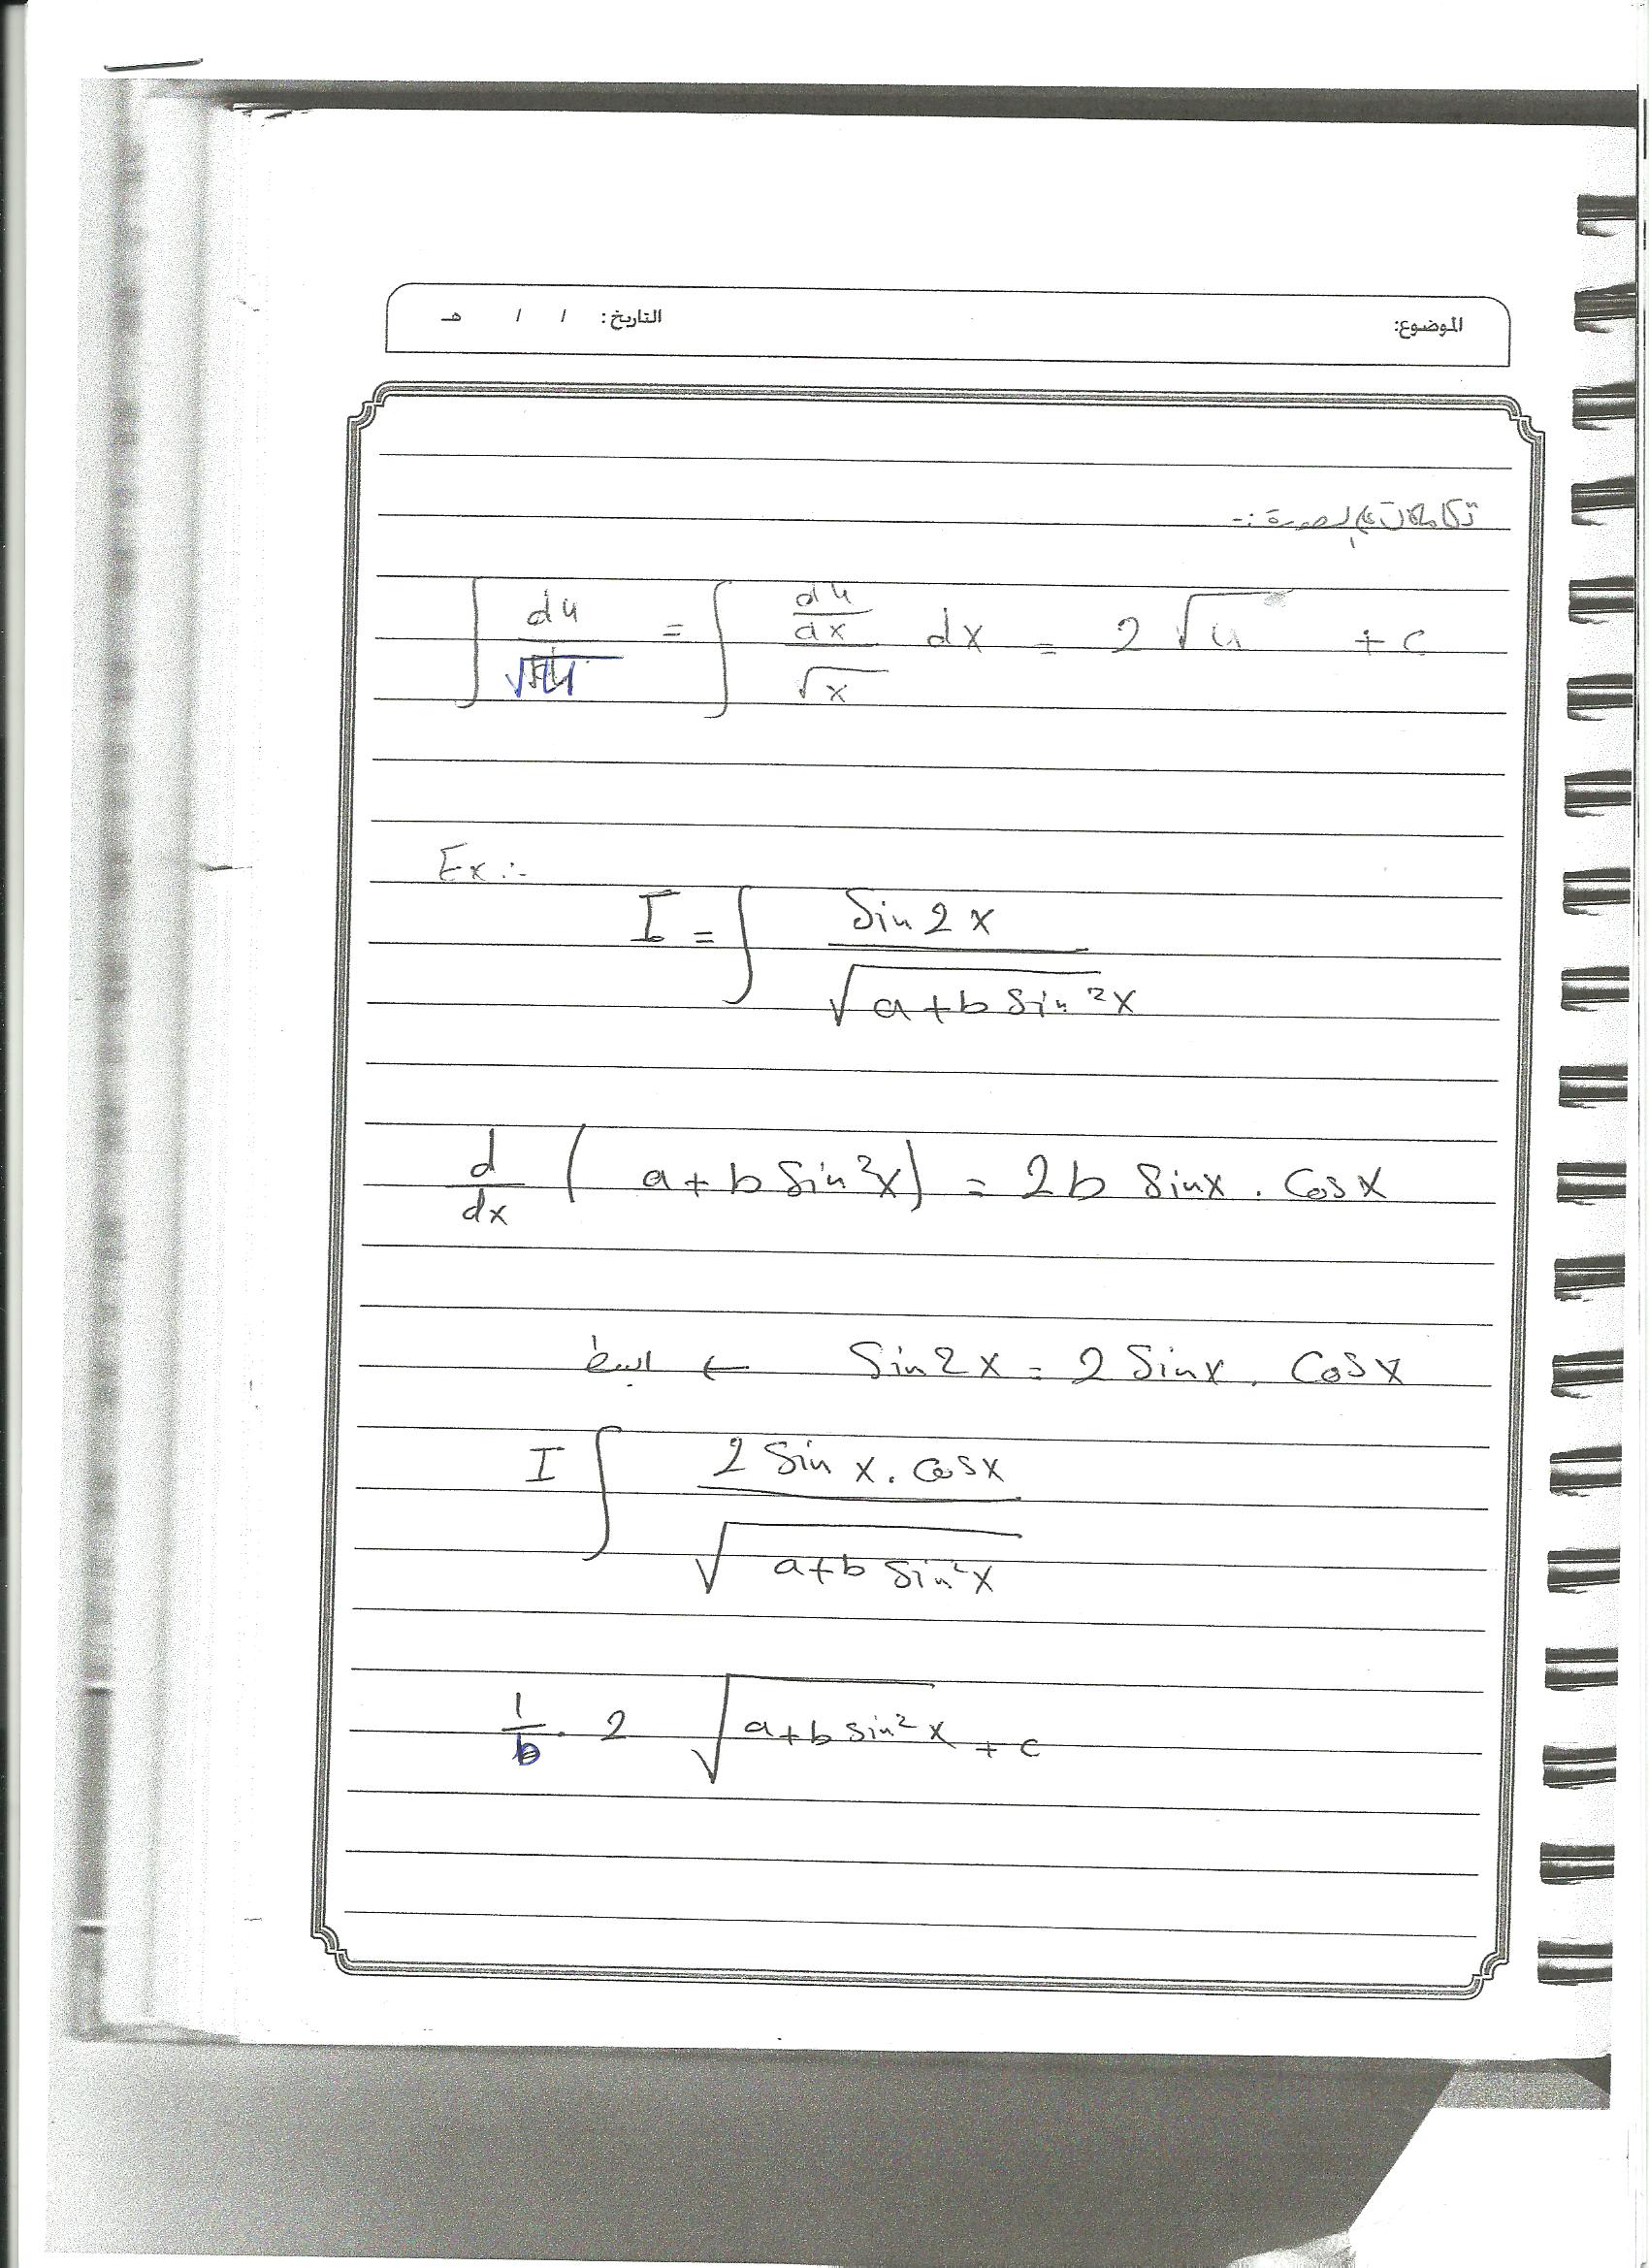 الموضوع: التاريخ: / / هـ
تكاملات على الصورة :-
∫ du/√u = ∫ (du/dx)/√x dx = 2 √u + c
Ex :-
I = ∫ Sin 2x / √(a+b Sin²x)
d/dx ( a+b Sin²x) = 2b Sinx . Cosx
البسط ← Sin2x = 2 Sinx . Cosx
I ∫ 2 Sin x . Cosx / √(a+b Sin²x)
1/b . 2 √(a+b sin²x) + c